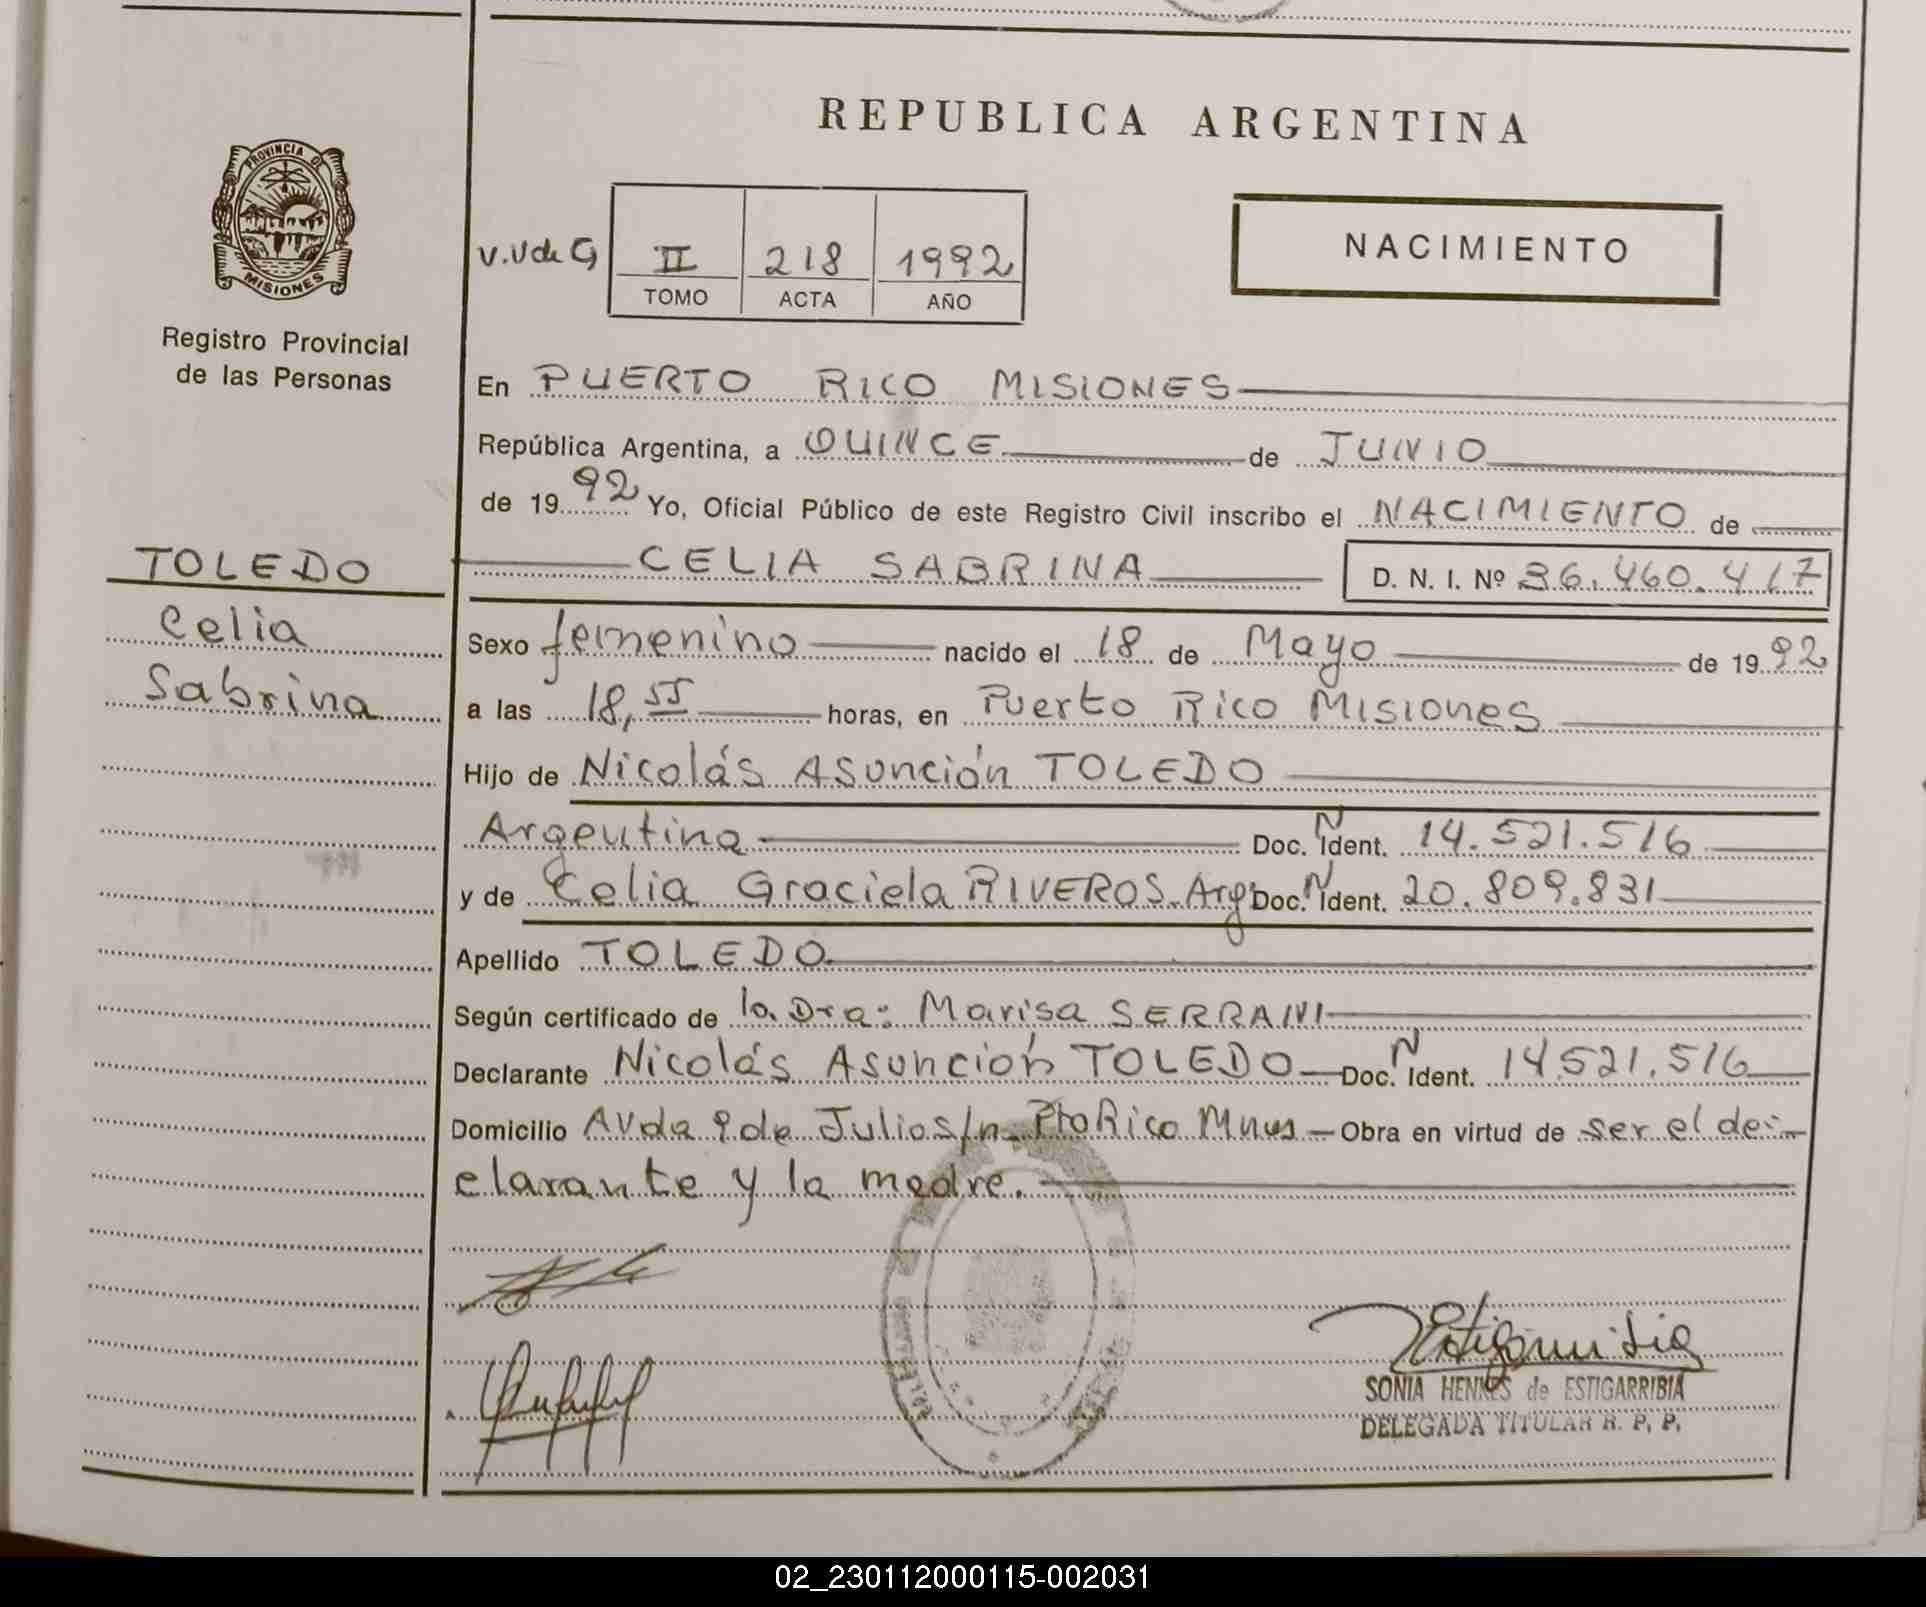 REPUBLICA ARGENTINA
PROVINCIA DE
MISIONES
Registro Provincial
de las Personas
V.V de G II 218 1992
TOMO ACTA AÑO
NACIMIENTO
En PUERTO RICO MISIONES
República Argentina, a QUINCE de JUNIO
de 19 92 Yo, Oficial Público de este Registro Civil inscribo el NACIMIENTO de
CELIA SABRINA D. N. I. Nº 36.460.417
TOLEDO
Celia
Sabrina
Sexo femenino nacido el 18 de Mayo de 19 92
a las 18,55 horas, en Puerto Rico Misiones
Hijo de Nicolás Asunción TOLEDO
Argentina Doc. N Ident. 14.521.516
y de Celia Graciela RIVEROS. Arg Doc. N Ident. 20.809.831
Apellido TOLEDO
Según certificado de la Dra: Marisa SERRANI
Declarante Nicolás Asunción TOLEDO Doc. N Ident. 14.521.516
Domicilio Avda 9 de Julio s/n. Pto Rico Mnes Obra en virtud de ser el de-
clarante y la madre.
SONIA HENNES de ESTIGARRIBIA
DELEGADA TITULAR R. P. P.
02_230112000115-002031